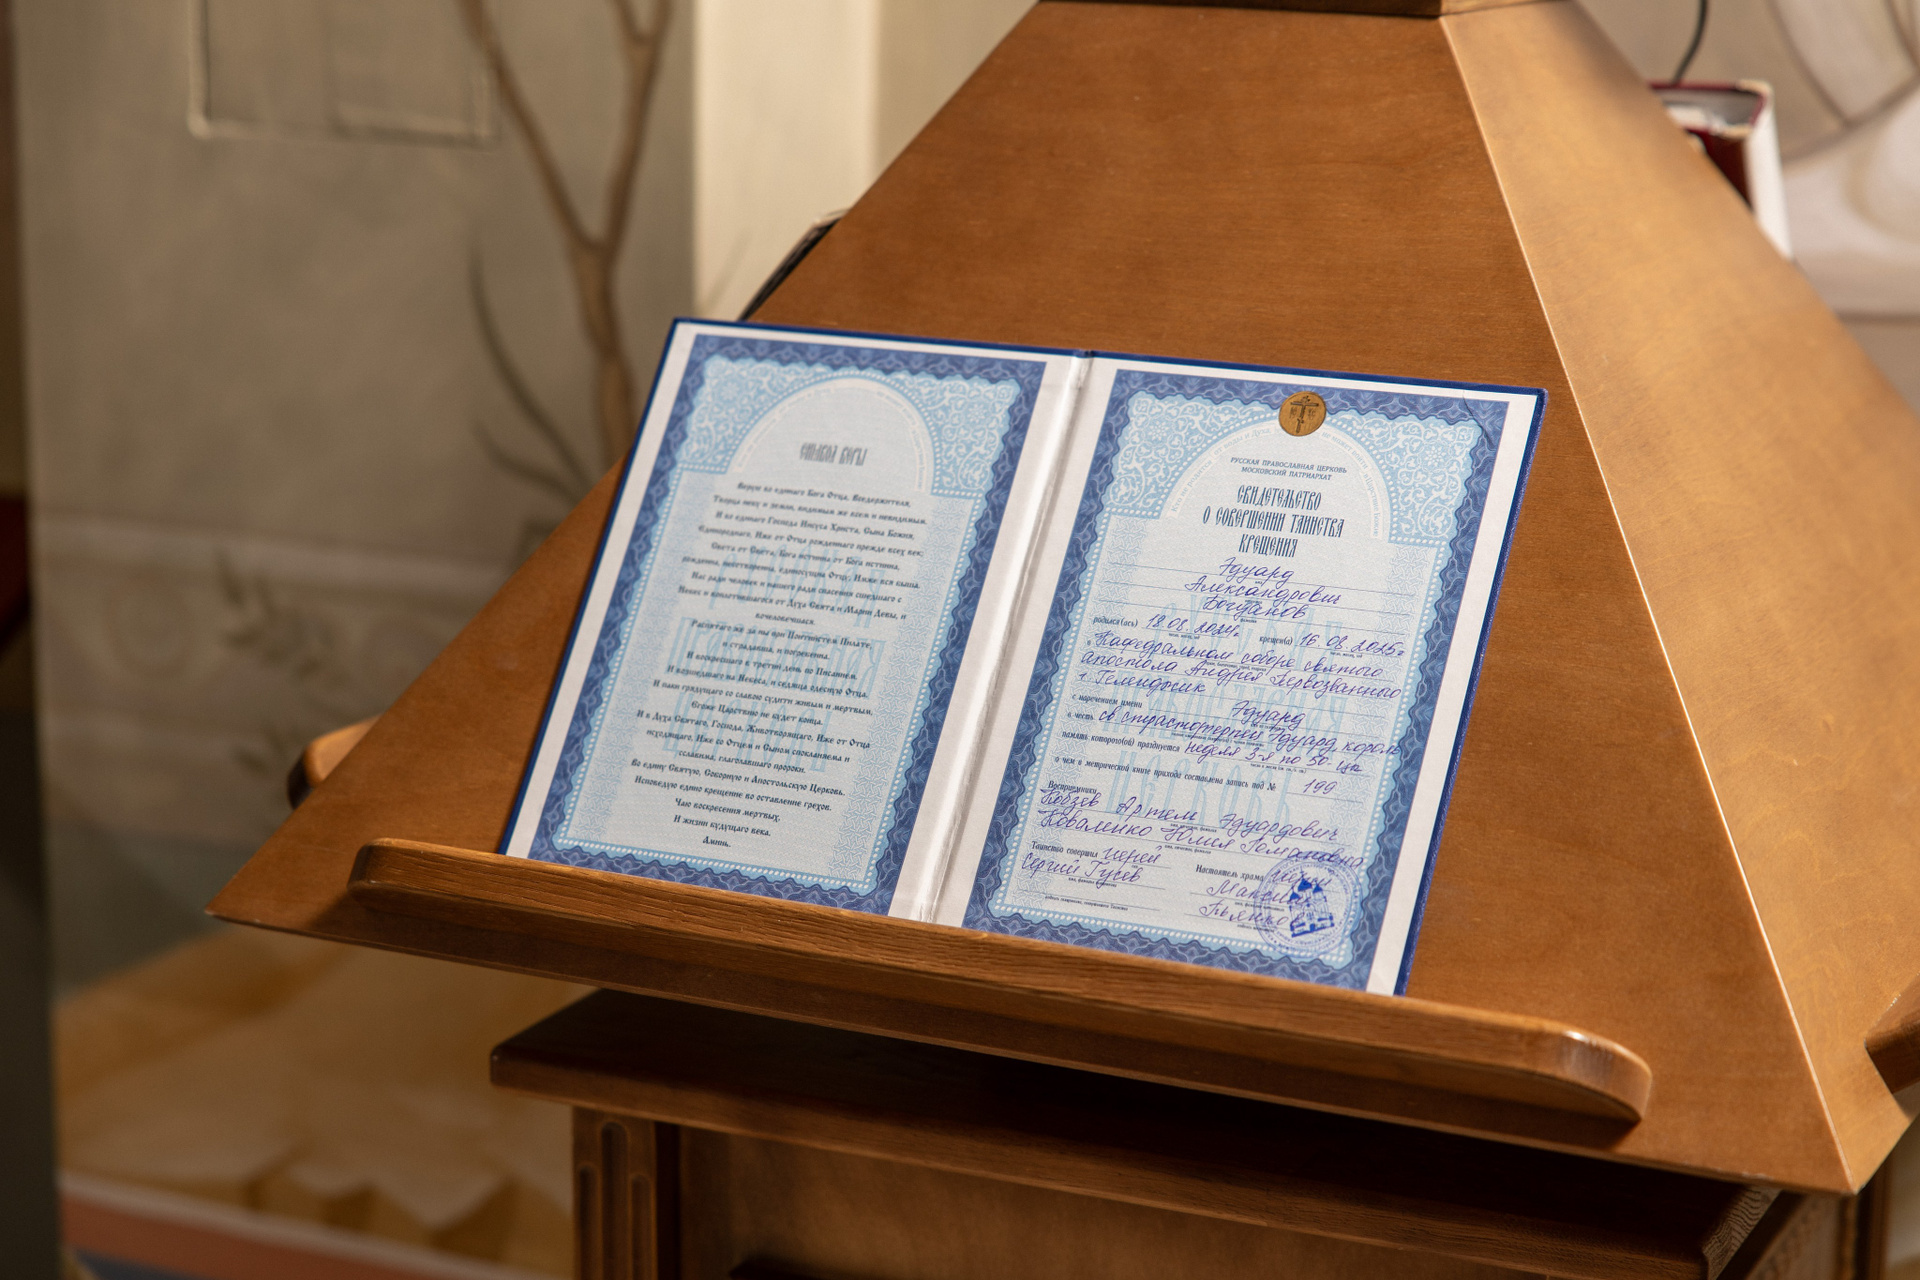 СИМВОЛ ВЕРЫ
Верую во единаго Бога Отца, Вседержителя,
Творца небу и земли, видимым же всем и невидимым.
И во единаго Господа Иисуса Христа, Сына Божия,
Единороднаго, Иже от Отца рожденнаго прежде всех век;
Света от Света, Бога истинна от Бога истинна,
рожденна, несотворенна, единосущна Отцу, Имже вся быша.
Нас ради человек и нашего ради спасения сшедшаго с
Небес и воплотившагося от Духа Свята и Марии Девы, и
вочеловечшася.
Распятаго же за ны при Понтийстем Пилате,
и страдавша, и погребенна.
И воскресшаго в третий день по Писанием.
И возшедшаго на Небеса, и седяща одесную Отца.
И паки грядущаго со славою судити живым и мертвым,
Егоже Царствию не будет конца.
И в Духа Святаго, Господа, Животворящаго, Иже от Отца
исходящаго, Иже со Отцем и Сыном спокланяема и
сславима, глаголавшаго пророки.
Во едину Святую, Соборную и Апостольскую Церковь.
Исповедую едино крещение во оставление грехов.
Чаю воскресения мертвых,
И жизни будущаго века.
Аминь.
РУССКАЯ ПРАВОСЛАВНАЯ ЦЕРКОВЬ
МОСКОВСКИЙ ПАТРИАРХАТ
СВИДЕТЕЛЬСТВО
О СОВЕРШЕНИИ ТАИНСТВА
КРЕЩЕНИЯ
Эдуард
Александрович
Богданов
родился(ась) 18.08.2024г. крещен(а) 16.08.2025г
в Кафедральном соборе святого
апостола Андрея Первозванного
г. Геленджик
с наречением имени Эдуард
в честь св страстотерпий Эдуард, король
память которого(ой) празднуется неделя 3-я по 50-це
о чем в метрической книге прихода составлена запись под № 199
Восприемники
Кобзев Артем Эдуардович
Коваленко Юлия Романовна
Таинство совершил иерей
Сергий Гусев
Настоятель храма иерей
Максим